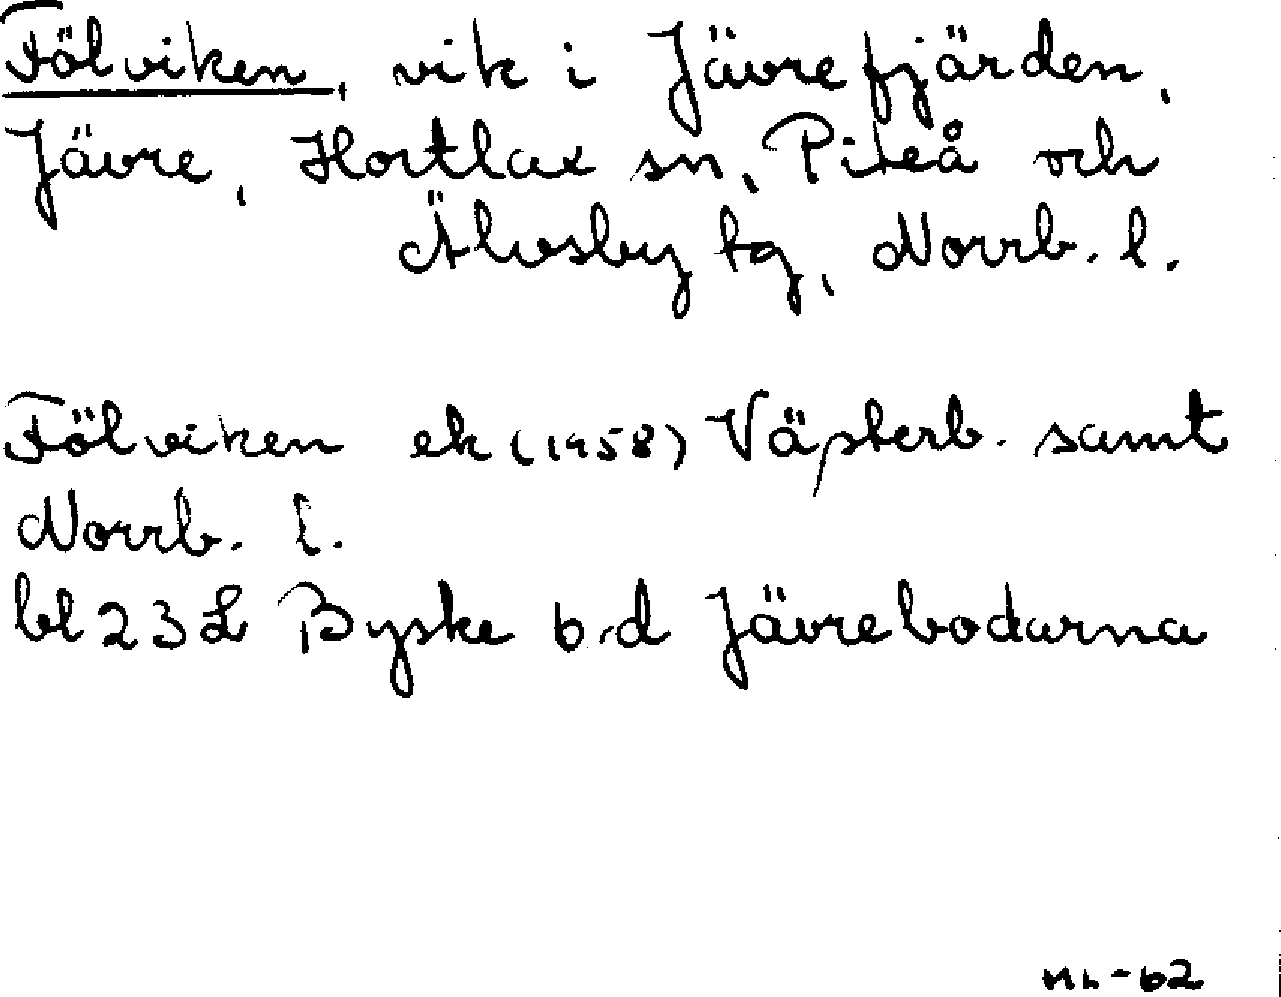 Fölviken, vik i Jävrefjärden,
Jävre, Hortlax sn, Piteå och
Älvsby tg, Norrb. l.
Fölviken ek (1958) Västerb. samt
Norrb. l.
bl 23 L Byske b.d Jävrebodarna
-62